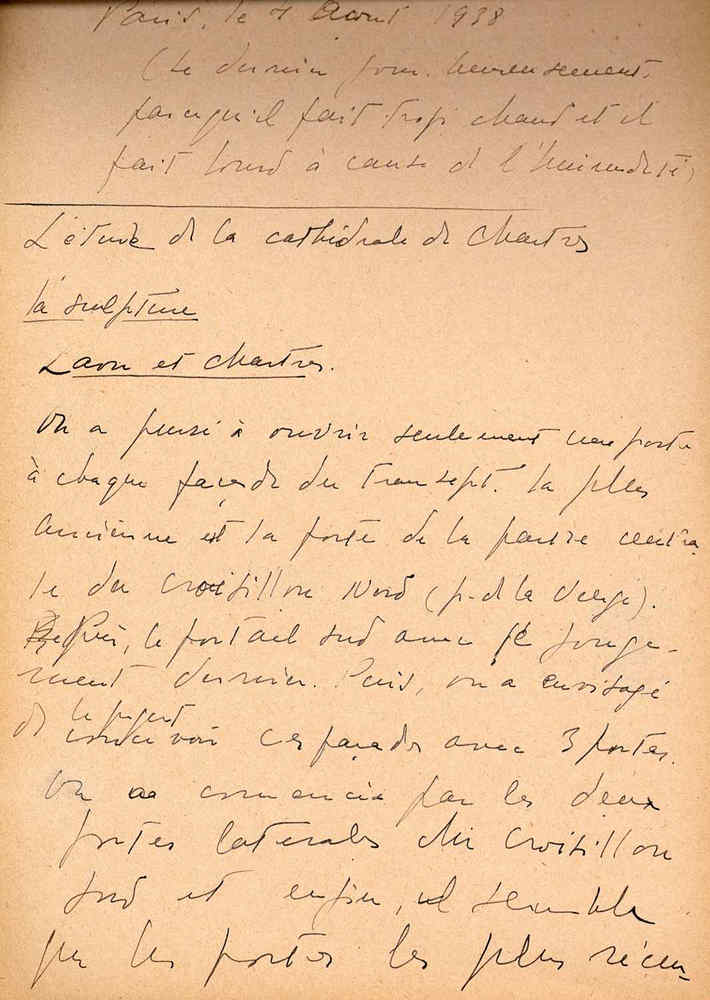 Paris, le 4 Août 1938
(le dernier jour. heureusement.
parcequ'il fait trop chaud et il
fait lourd à cause de l'humidité)
L'étude de la cathédrale de Chartres
la sculpture
Laon et Chartres.
On a pensé à ouvrir seulement une porte
à chaque façade du transept. la plus
ancienne est la porte de la partie centra
le du croisillon Nord (p. de la Vierge).
Puis, le portail sud avec le Juge-
ment dernier. Puis, on a envisagé
de concevoir ces façades avec 3 portes.
On a commencé par les deux
portes laterales du croisillon
sud et enfin, il semble
que les portes les plus récen-